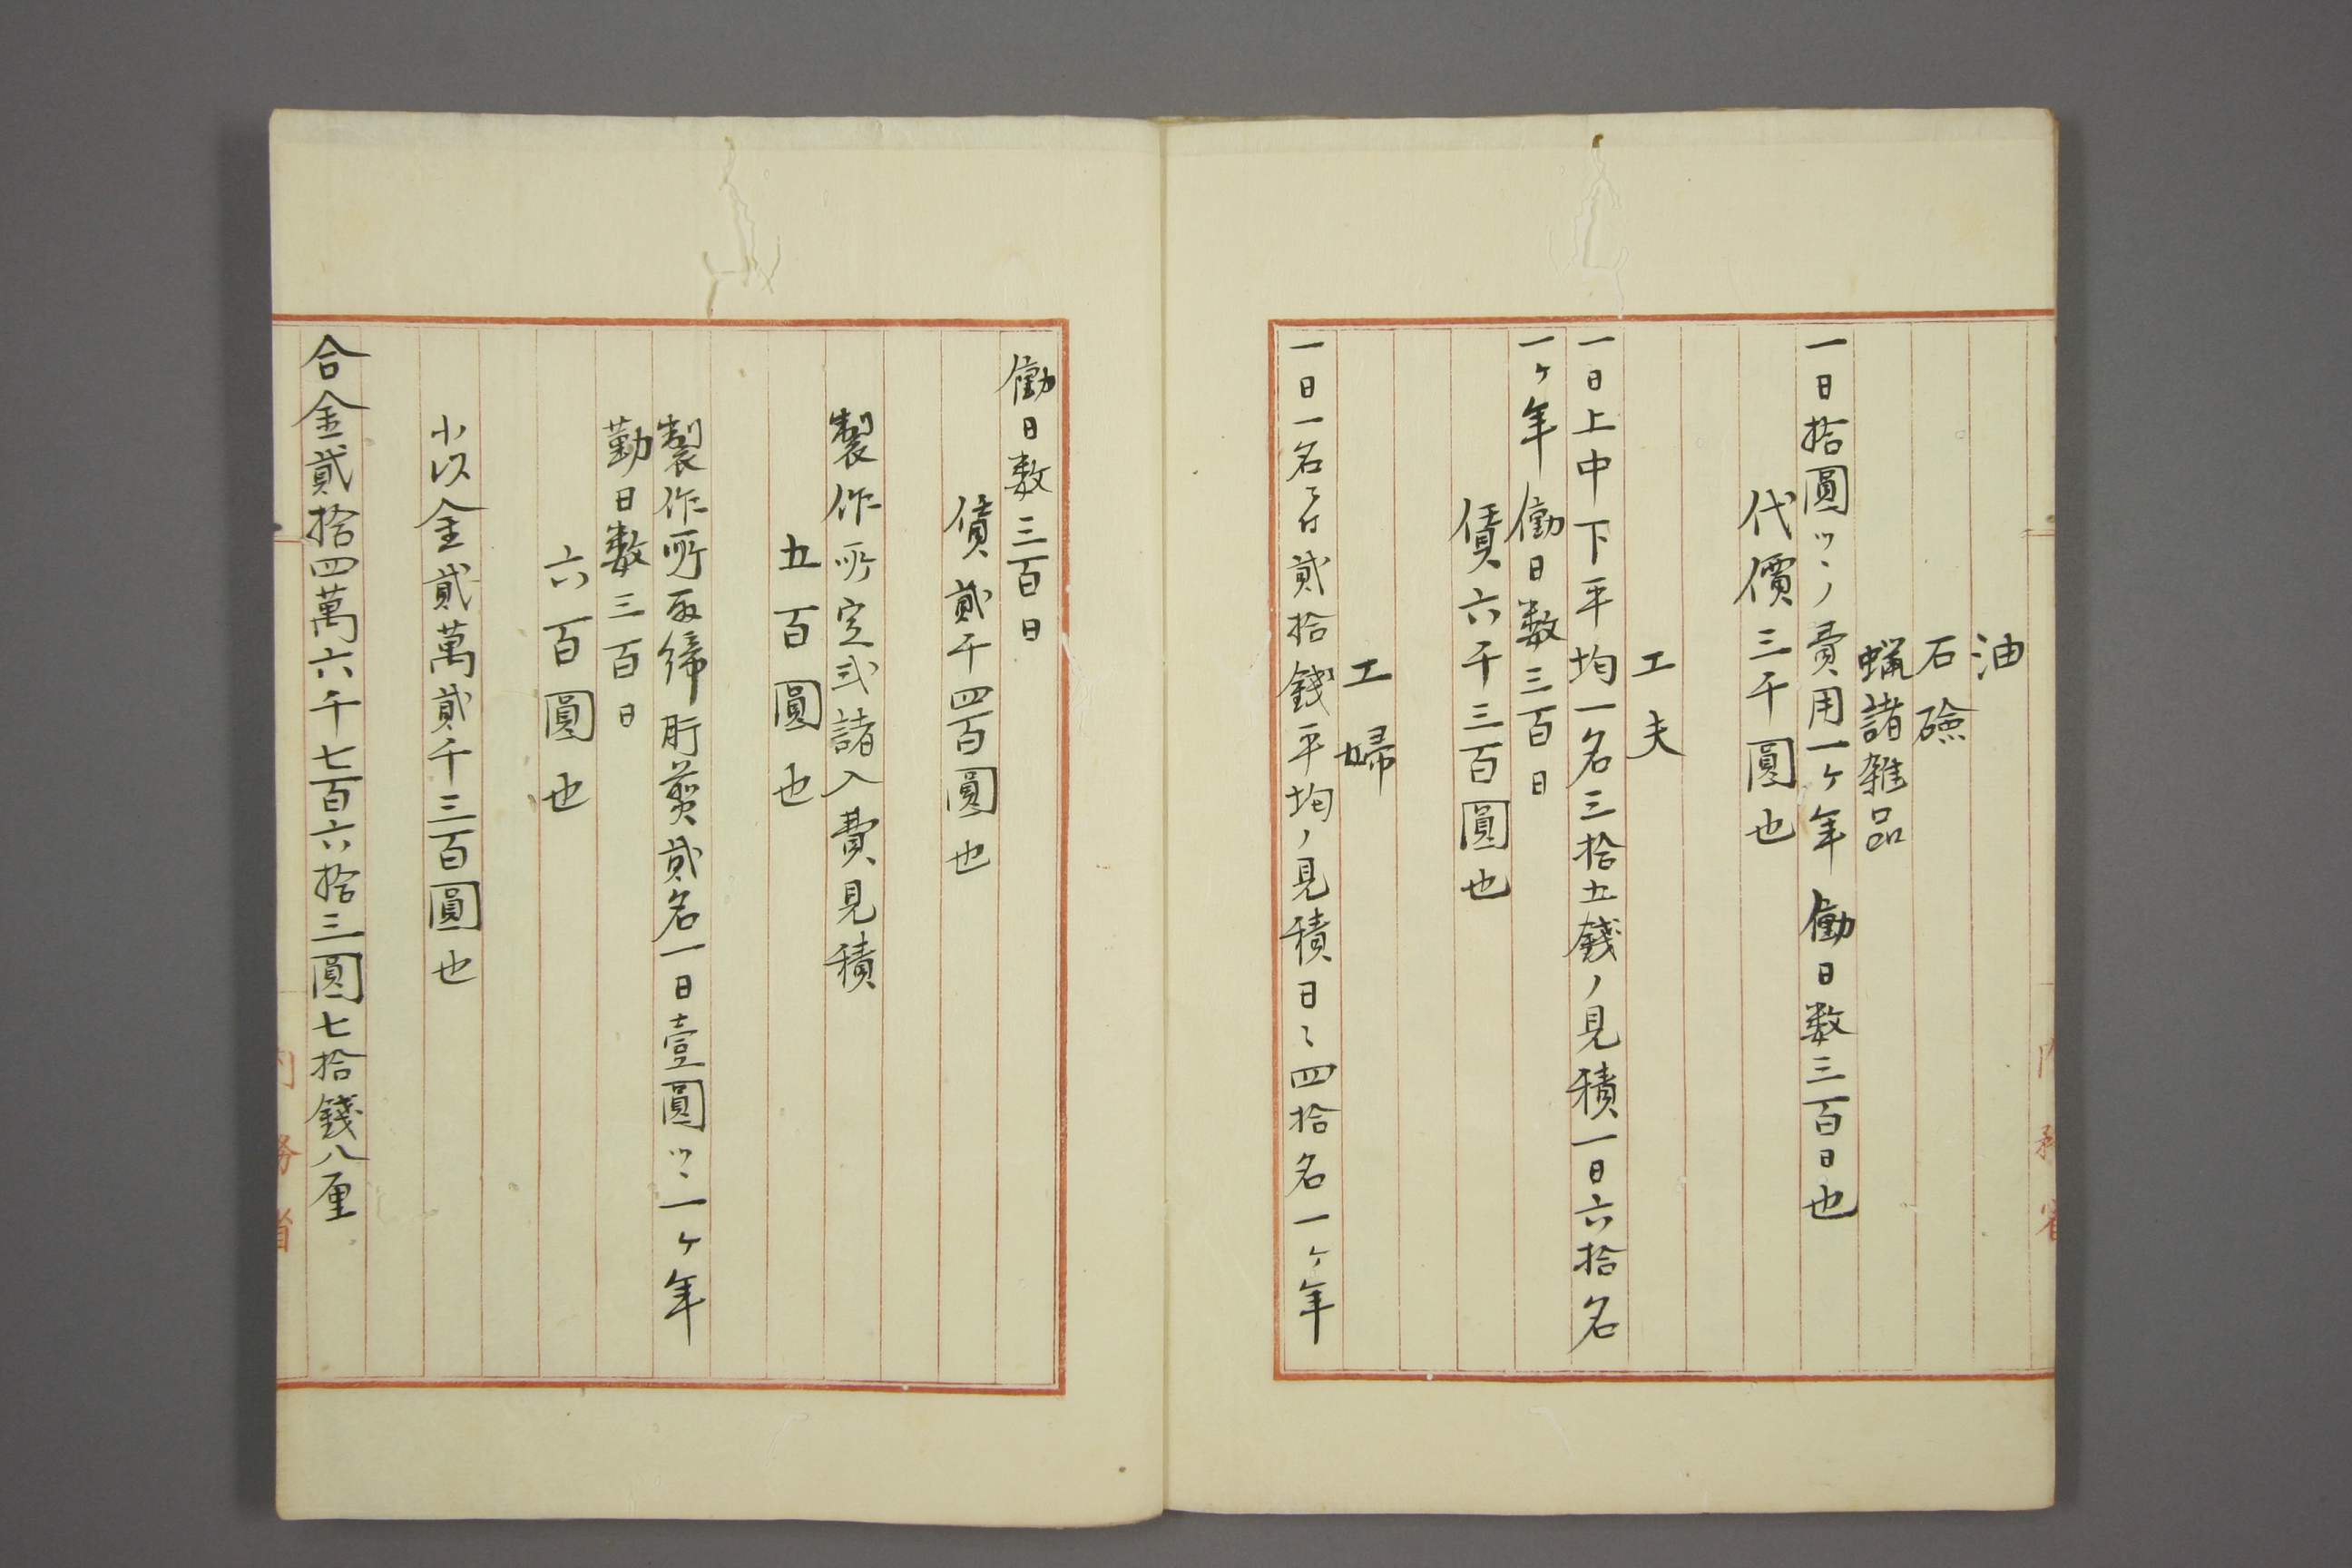 油
石礆
蝋諸雑品
一日拾圓ツヽノ費用一ケ年働日数三百日也
代價三千圓也
工夫
一日上中下平均一名三拾五錢ノ見積一日六拾名
一ケ年働日数三百日
賃六千三百圓也
工婦
一日一名ニ付貳拾錢平均ノ見積日々四拾名一ケ年
働日数三百日
賃貳千四百圓也
製作所定式諸入費見積
五百圓也
製作所取締肝煎貳名一日壹圓ツヽ一ケ年
勤日数三百日
六百圓也
小以金貳萬貳千三百圓也
合金貳拾四萬六千七百六拾三圓七拾錢八厘
内務省